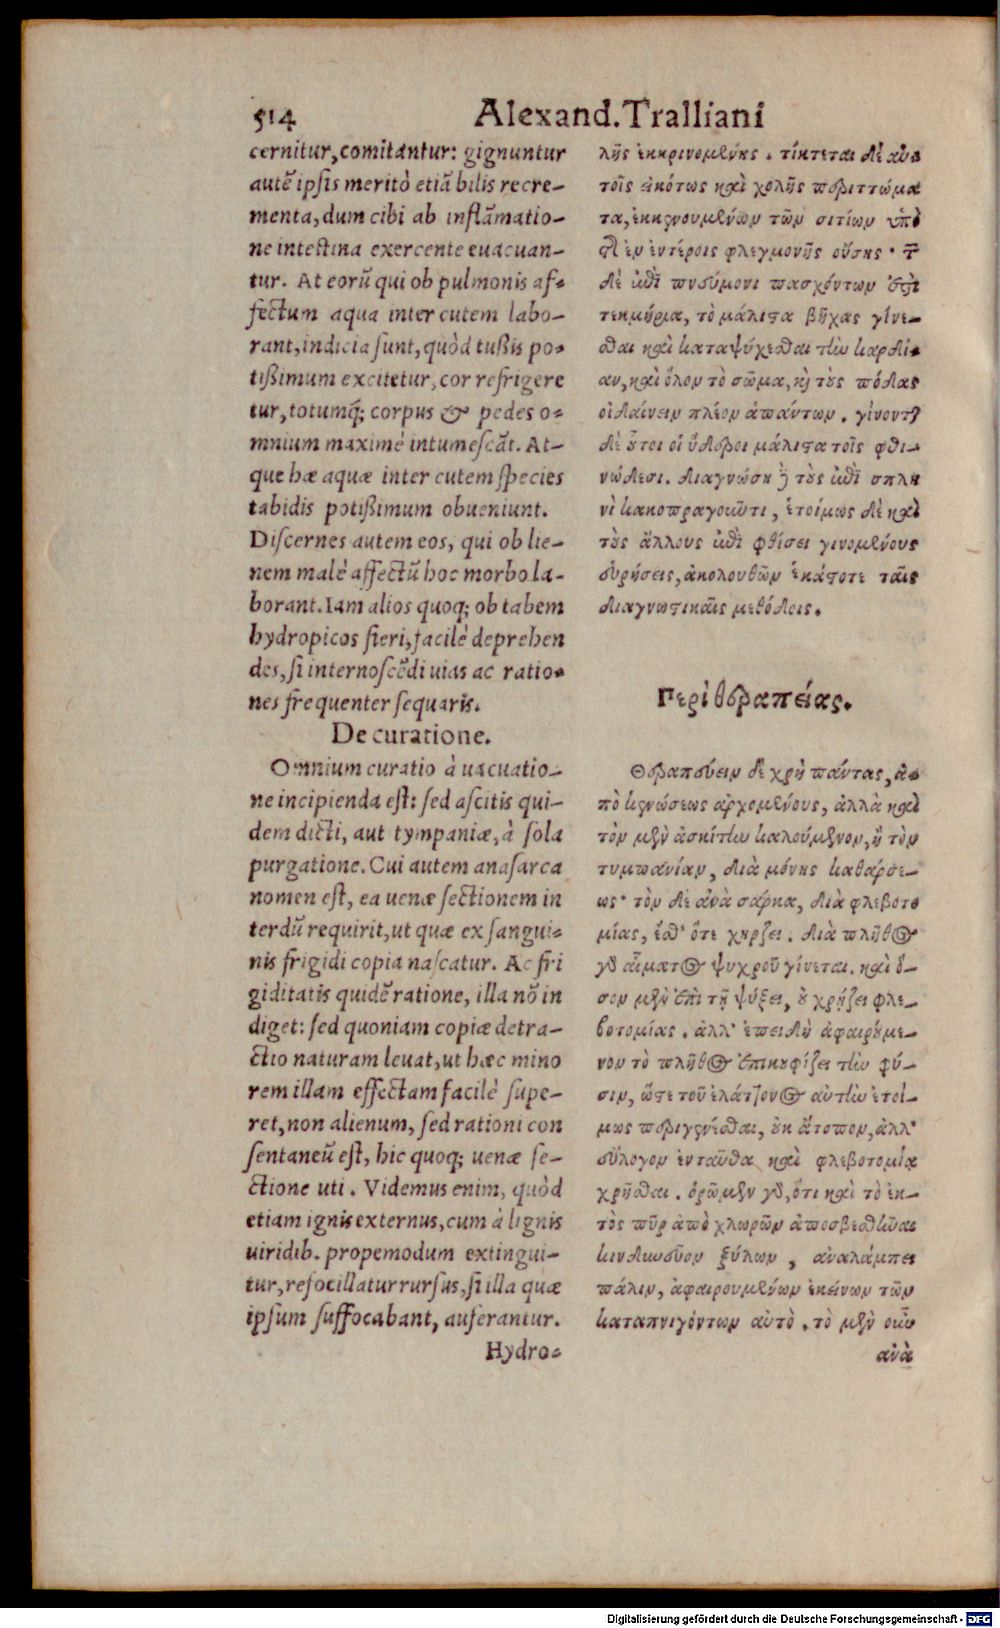 514 Alexand. Tralliani
cernitur, comitantur: gignuntur
autē ipsis meritò etiā bilis recre-
menta, dum cibi ab inflāmatio-
ne intestina exercente euacuan-
tur. At eorū qui ob pulmonis af-
fectum aqua inter cutem labo-
rant, indicia sunt, quòd tußis po-
tißimum excitetur, cor refrigere
tur, totumq; corpus & pedes o-
mnium maximè intumescāt. At-
que hæ aquæ inter cutem species
tabidis potißimum obueniunt.
Discernes autem eos, qui ob lie-
nem malè affectū hoc morbo la-
borant. Iam alios quoq; ob tabem
hydropicos fieri, facilè deprehen
des, si internoscēdi uias ac ratio-
nes frequenter sequaris.
De curatione.
Omnium curatio à uacuatio-
ne incipienda est: sed ascitis qui-
dem dicti, aut tympaniæ, à sola
purgatione. Cui autem anasarca
nomen est, ea uenæ sectionem in
terdū requirit, ut quæ ex sangui-
nis frigidi copia nascatur. Ac fri
giditatis quidē ratione, illa nō in
diget: sed quoniam copiæ detra-
ctio naturam leuat, ut hæc mino
rem illam effectam facilè supe-
ret, non alienum, sed rationi con
sentaneū est, hic quoq; uenæ se-
ctione uti. Videmus enim, quòd
etiam ignis externus, cum à lignis
uiridib. propemodum extingui-
tur, refocillatur rursus, si illa quæ
ipsum suffocabant, auferantur.
Hydro-
λῆς ἐκκρινομένης. τίκτεται δὲ αὐ-
τοῖς εἰκότως καὶ χολῆς περιττώμα
τα, ἐκκενουμένων τῶν σιτίων ὑπὸ
τῆς ἐν ἐντέροις φλεγμονῆς οὔσης· τ
δὲ ἐπὶ πνεύμονι πασχόντων ἐστὶ
τεκμήρια, τὸ μάλιστα βῆχας γίνε-
σθαι καὶ καταψύχεσθαι τὴν καρδί-
αν, καὶ ὅλον τὸ σῶμα, κ τοὺς πόδας
οἰδαίνειν πλέον ἁπάντων. γίνοντ
δὲ οὗτοι οἱ ὕδεροι μάλιστα τοῖς φθι-
νώδεσι. διαγνώσῃ δὲ τοὺς ἐπὶ σπλη
νὶ κακοπραγοῦντι, ἑτοίμως δὲ καὶ
τοὺς ἄλλους ἐπὶ φθίσει γινομένους
εὑρήσεις, ἀκολουθῶν ἑκάστοτε ταῖς
διαγνωστικαῖς μεθόδοις.
Περὶ θεραπείας.
Θεραπεύειν δὲ χρὴ πάντας, ἀ-
πὸ κενώσεως ἀρχομένους, ἀλλὰ καὶ
τὸν μὲν ἀσκίτην καλούμενον, ἢ τὸν
τυμπανίαν, διὰ μόνης καθάρσε-
ως· τὸν δὲ ἀνὰ σάρκα, διὰ φλεβοτο
μίας, ἔσθ' ὅτε χρῄζει. διὰ πλῆθος
γὰρ αἵματος ψυχροῦ γίνεται. καὶ ὅ-
σον μὲν ἐπὶ τῇ ψύξει, οὐ χρῄζει φλε-
βοτομίας. ἀλλ' ἐπειδὴ ἀφαιρούμε-
νον τὸ πλῆθος ἐπικουφίζει τὴν φύ-
σιν, ὥστε τοῦ ἐλάττονος αὐτὴν ἑτοί-
μως περιγενέσθαι, οὐκ ἄτοπον, ἀλλ'
εὔλογον ἐνταῦθα καὶ φλεβοτομίᾳ
χρῆσθαι. ὁρῶμεν γὰρ, ὅτι καὶ τὸ ἐκ-
τὸς πῦρ ἀπὸ χλωρῶν ἀποσβεσθῆναι
κινδυνεῦον ξύλων, ἀναλάμπει
πάλιν, ἀφαιρουμένων ἐκείνων τῶν
καταπνιγόντων αὐτὸ. τὸ μὲν οὖν
ἀνὰ
Digitalisierung gefördert durch die Deutsche Forschungsgemeinschaft - DFG